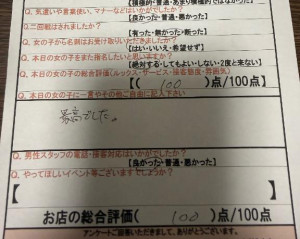 Q. 気遣いや言葉使い、マナーなどはいかがでしたか?
【良かった・普通・悪かった】
Q. 二回戦はされましたか?
【有った・無かった・断った】
Q. 女の子から名刺はお受け取りいただきましたか?
【はい・いいえ・希望せず】
Q. 本日の女の子をまた指名したいと思いますか?
【絶対する・してもよい・しない・2度と来ない】
Q. 本日の女の子の総合評価(ルックス・サービス・接客態度・雰囲気)
【( 100 )点/100点】
Q. 本日の女の子に一言やその他ご自由に記入下さい
最高でした。
Q. 男性スタッフの電話・接客対応はいかがでしたか?
【良かった・普通・悪かった】
Q. やってほしいイベント等ございますでしょうか?
【 】
お店の総合評価( 100 )点/100点
アンケートご回答いただきまして、ありがとうございます。